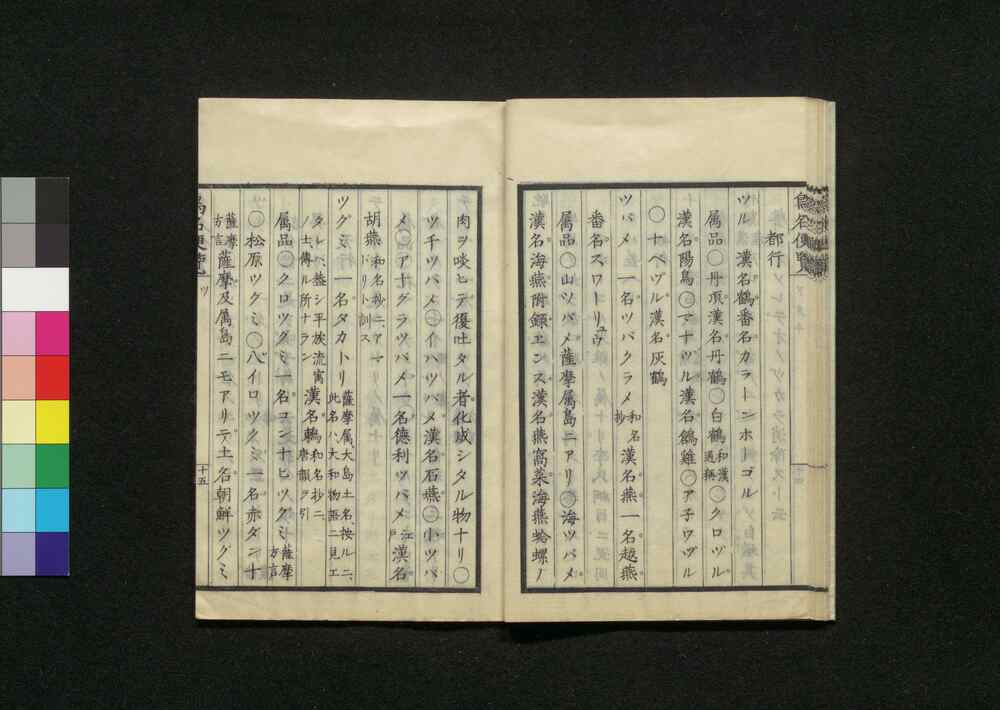 鳥名便覧
都行
ツル 漢名鶴番名カラーンホーゴル
属品〇丹頂漢名丹鶴〇白鶴和漢通称〇クロヅル
漢名陽烏〇マナヅル漢名鶬雞〇アネハヅル
〇ナベヅル漢名灰鶴
ツバメ 一名ツバクラメ和名抄漢名燕一名越燕
番名スワートリュウ
属品〇山ツバメ薩摩属島ニアリ〇海ツバメ
漢名海燕附録エンス漢名燕窩菜海燕蛤螺ノ
肉ヲ啖ヒテ復吐タル者化成シタル物ナリ〇
ツチツバメ〇イハツバメ漢名石燕〇小ツバ
メ〇アナグラツバメ一名徳利ツバメ江戸漢名
胡燕和名抄ニ、アマドリト訓ス
ツグミ 一名タカトリ薩摩属、大島土名、按ルニ、此名ハ大和物語ニ見エ
タレバ、蓋シ平族流寓ノ士、傳ル所ナラン漢名鶫和名抄ニ、唐韻ヲ引
属品〇クロツグミ一名コンナヒツグミ薩摩方言
〇松原ツグミ〇八イロツグミ一名赤ダンナ
薩摩方言薩摩及属島ニモアリテ土名朝鮮ツグミ
鳥名便覧 ツ 十五